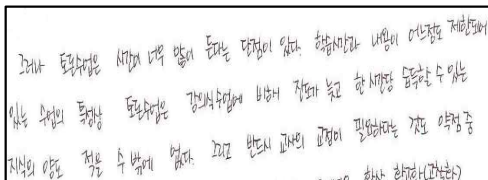 그러나 토론수업은 시간이 너무 많이 든다는 단점이 있다. 학습시간과 내용이 어느정도 제한되어
있는 수업의 특성상 토론수업은 강의식수업에 비해서 진도가 늦고 한 시간당 습득할 수 있는
지식의 양도 적을 수 밖에 없다. 그리고 반드시 교사의 교정이 필요하다는 것도 약점 중
항상